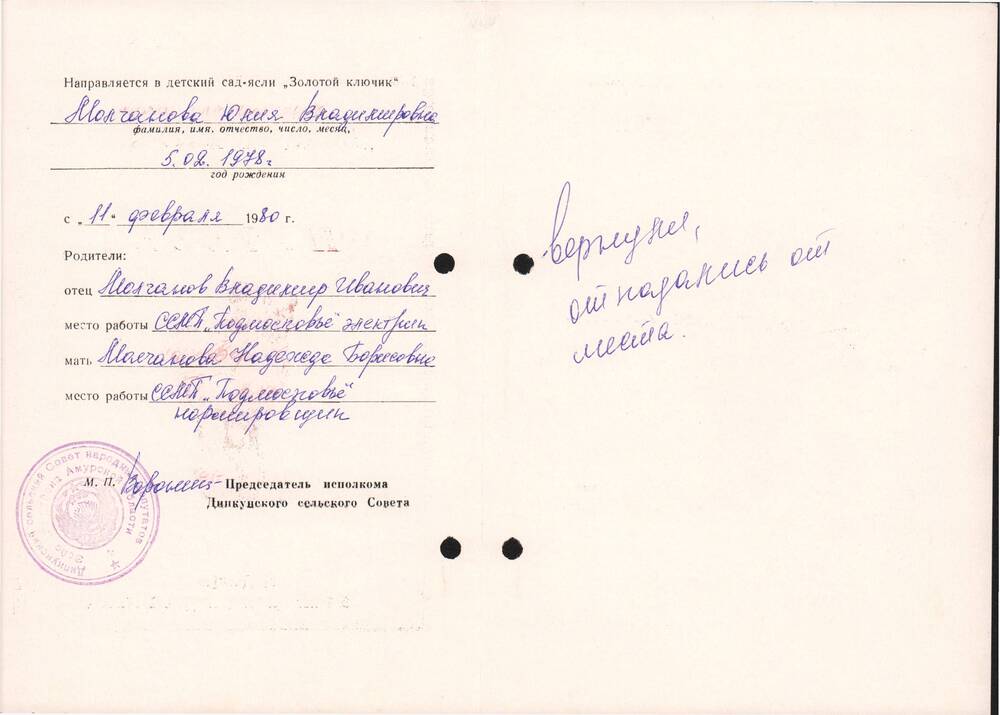 Направляется в детский сад-ясли „Золотой ключик“
Молчанова Юлия Владимировна
фамилия, имя, отчество, число, месяц,
5.02.1978г
год рождения
с „11“ февраля 1980 г.
Родители:
отец Молчанов Владимир Иванович
место работы ССМП „Подмосковье" электрик
мать Молчанова Надежда Борисовна
место работы ССМП „Подмосковье"
нормировщик
М. П. Председатель исполкома
Дипкунского сельского Совета
вернули,
отказались от
места.